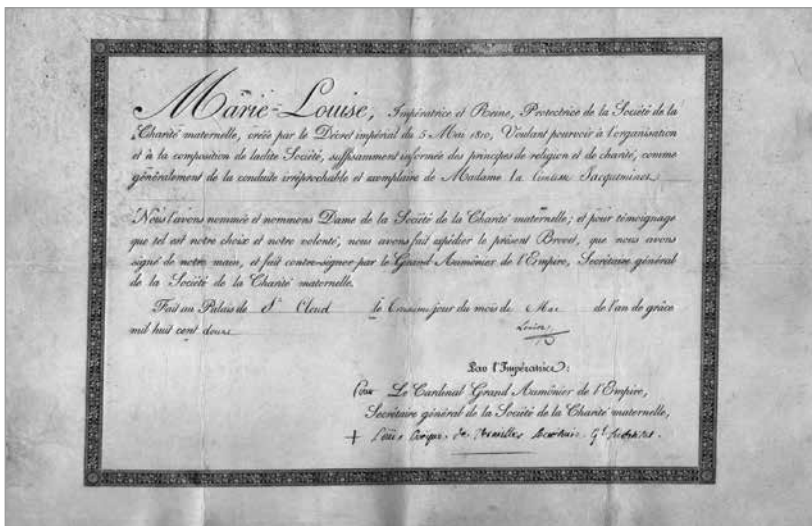 Marie-Louise, Impératrice et Reine, Protectrice de la Société de la
Charité maternelle, créée par le Décret impérial du 5 Mai 1810, Voulant pourvoir à l'organisation
et à la composition de ladite Société, suffisamment informée des principes de religion et de charité, comme
généralement de la conduite irréprochable et exemplaire de Madame la Comtesse Jacqueminot
Nous l'avons nommée et nommons Dame de la Société de la Charité maternelle; et pour témoignage
que tel est notre choix et notre volonté, nous avons fait expédier le présent Brevet, que nous avons
signé de notre main, et fait contre-signer par le Grand Aumônier de l'Empire, Secrétaire général
de la Société de la Charité maternelle.
Fait au Palais de St Cloud le jour du mois de Mai de l'an de grâce
mil huit cent douze
Louise
Par l'Impératrice:
Pour Le Cardinal Grand Aumônier de l'Empire,
Secrétaire général de la Société de la Charité maternelle,
+ Louis de Versailles Secrétaire Gl